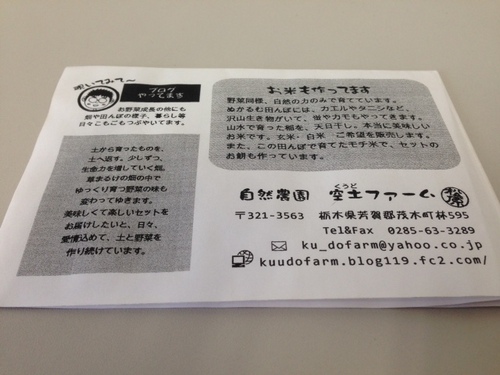 覗いてみて〜
ブログ
やってます
お野菜成長の他にも
畑や田んぼの様子、暮らし等
日々こもごもつぶやいてます。
土から育ったものを、
土へ返す。少しずつ、
生命力を増していく畑。
草まるけの畑の中で
ゆっくり育つ野菜の味も
変わってゆきます。
美味しくて楽しいセットを
お届けしたいと、日々、
愛情込めて、土と野菜を
作り続けています。
お米も作ってます
野菜同様、自然の力のみで育てています。
ぬかるむ田んぼには、カエルやタニシなど、
沢山生き物がいて、蛍やカモもやってきます。
山水で育った稲を、天日干し。本当に美味しい
お米です。玄米・白米・ご希望を販売します。
また、この田んぼで育てたモチ米で、セットの
お餅も作っています。
くうど
自然農園 空土ファーム
〒321-3563 栃木県芳賀郡茂木町林595
Tel&Fax 0285-63-3289
ku_dofarm@yahoo.co.jp
kuudofarm.blog119.fc2.com/